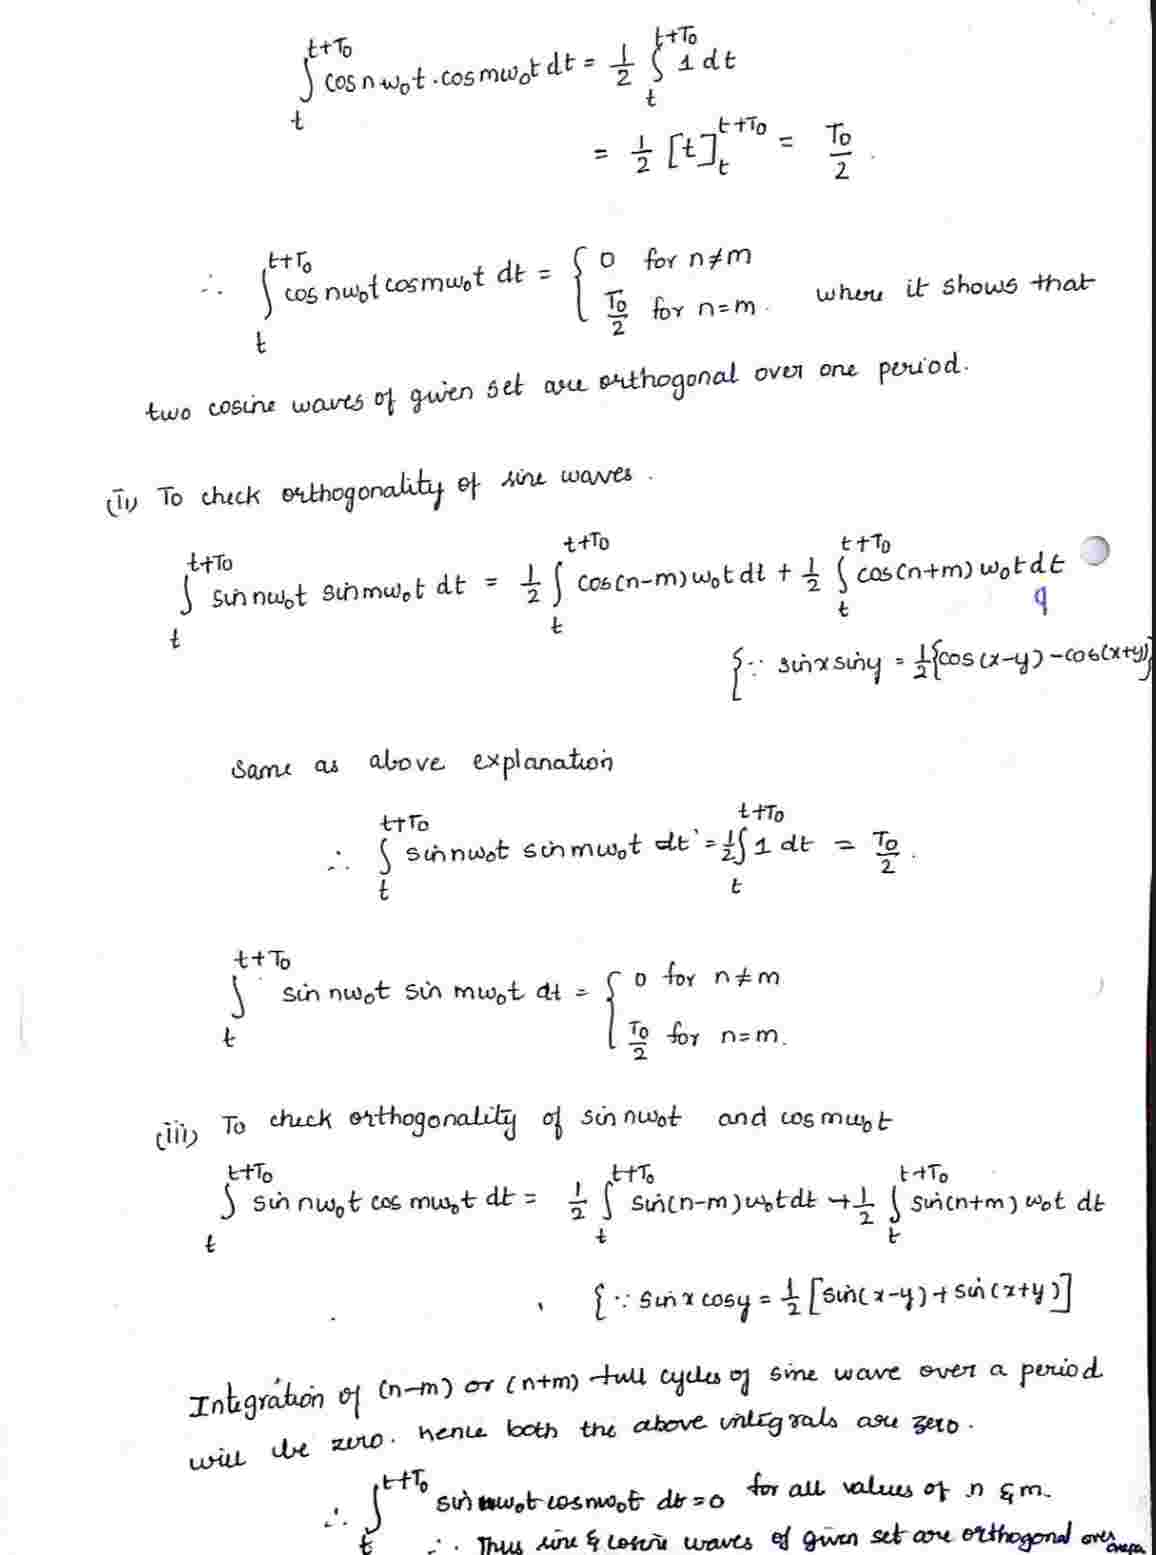 ∫_t^{t+T₀} cos nω₀t · cos mω₀t dt = 1/2 ∫_t^{t+T₀} 1 dt
= 1/2 [t]_t^{t+T₀} = T₀/2 .
∴ ∫_t^{t+T₀} cos nω₀t cos mω₀t dt = { 0 for n≠m
T₀/2 for n=m . where it shows that
two cosine waves of given set are orthogonal over one period.
(ii) To check orthogonality of sine waves .
∫_t^{t+T₀} sin nω₀t sin mω₀t dt = 1/2 ∫_t^{t+T₀} cos(n-m)ω₀t dt + 1/2 ∫_t^{t+T₀} cos(n+m)ω₀t dt
9
{∵ sinx siny = 1/2{cos(x-y) - cos(x+y)}
same as above explanation
∴ ∫_t^{t+T₀} sin nω₀t sin mω₀t dt = 1/2 ∫_t^{t+T₀} 1 dt = T₀/2 .
∫_t^{t+T₀} sin nω₀t sin mω₀t dt = { 0 for n≠m
T₀/2 for n=m.
(iii) To check orthogonality of sin nω₀t and cos mω₀t
∫_t^{t+T₀} sin nω₀t cos mω₀t dt = 1/2 ∫_t^{t+T₀} sin(n-m)ω₀t dt + 1/2 ∫_t^{t+T₀} sin(n+m)ω₀t dt
{∵ sinx cosy = 1/2 [sin(x-y) + sin(x+y)]
Integration of (n-m) or (n+m) full cycles of sine wave over a period
will be zero. hence both the above integrals are zero.
∴ ∫_t^{t+T₀} sin nω₀t cos mω₀t dt = 0 for all values of n & m.
∴ Thus sine & cosine waves of given set are orthogonal over